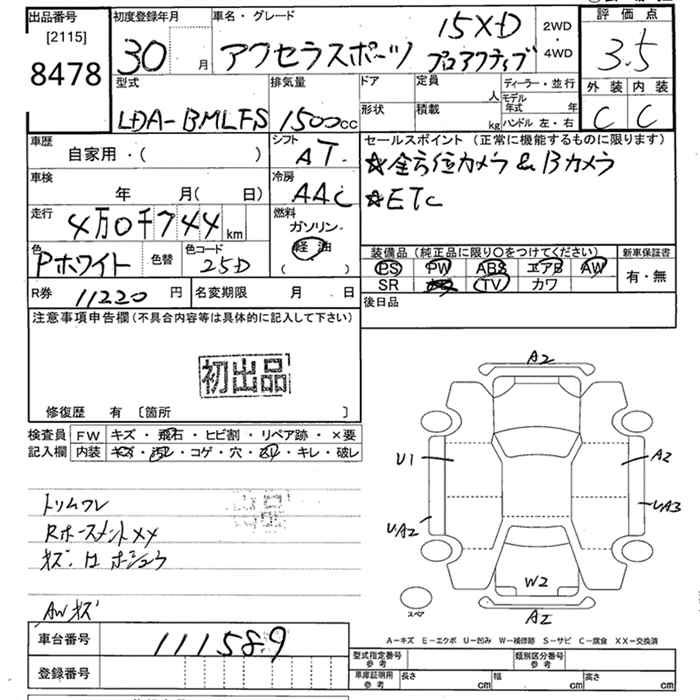 出品番号
[2115]
8478
初度登録年月
30 月
車名・グレード
アクセラスポーツ
15XD
プロアクティブ
2WD
・
4WD
評価点
3.5
外装 内装
C C
型式
LDA-BMLFS
排気量
1500cc
ドア
定員
人
形状
積載
kg
ディーラー・並行
モデル年式 年
ハンドル 左・右
車歴
自家用・( )
シフト
AT
セールスポイント (正常に機能するものに限ります)
☆全方位カメラ&Bカメラ
☆ETC
車検
年 月( 日)
冷房
AAC
走行
4万0千744km
燃料
ガソリン
軽油
( )
色
Pホワイト
色替
色コード
25D
装備品 (純正品に限り〇をつけてください)
PS PW ABS エアB AW
SR TV カワ
新車保証書
有・無
R券 11220円
名変期限 月 日
後日品
注意事項申告欄 (不具合内容等は具体的に記入して下さい)
初出品
修復歴 有 [箇所 ]
検査員
記入欄
FW キズ・飛石・ヒビ割・リペア跡・×要
内装 キズ・汚レ・コゲ・穴・スレ・キレ・破レ
トリムスレ
AWキズ
A2
U1
A2
UA2
UA3
W2
A2
スペア
A-キズ E-エクボ U-凹み W-補修跡 S-サビ C-腐食 XX-交換済
車台番号
111589
登録番号
型式指定番号
参考
類別区分番号
参考
車庫証明用
参考
長さ cm
幅 cm
高さ cm